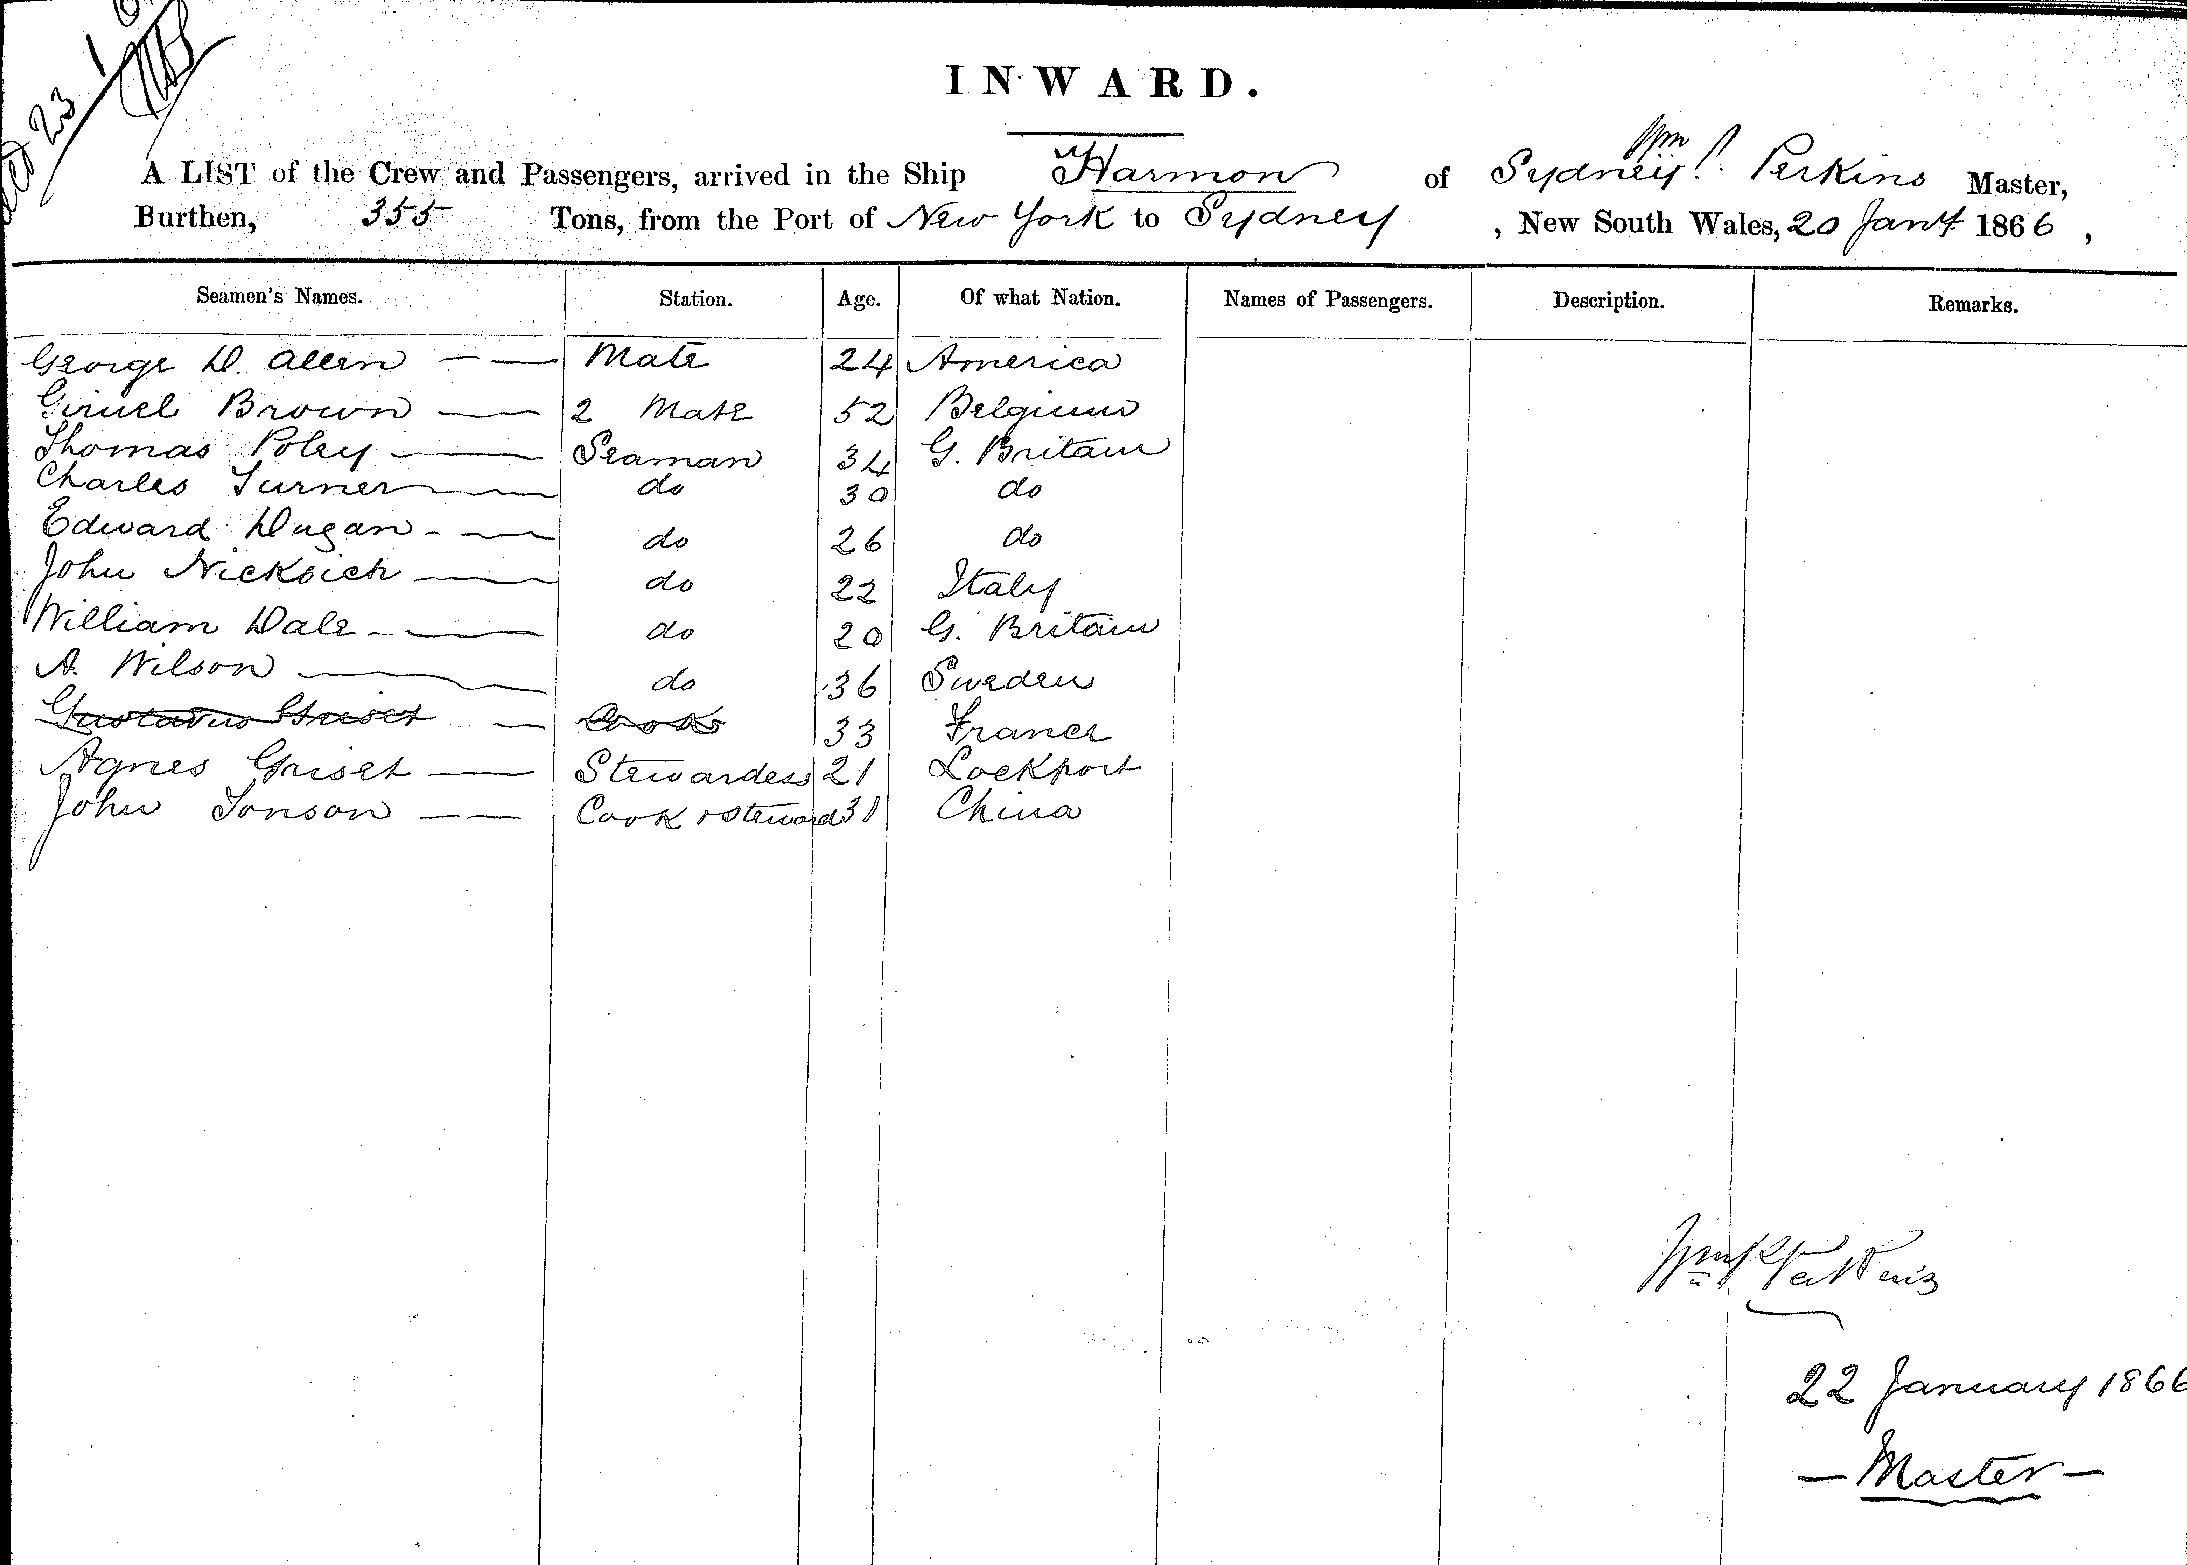 23 / 1
INWARD.
A LIST of the Crew and Passengers, arrived in the Ship Harmon of Sydney Wm Perkins Master,
Burthen, 355 Tons, from the Port of New York to Sydney , New South Wales, 20 Jany 1866 ,
Seamen's Names. Station. Age. Of what Nation. Names of Passengers. Description. Remarks.
George D. Allen — — Mate 24 America
Brown — 2 Mate 52 Belgium
Thomas Poley — Seaman 34 G. Britain
Charles Turner — do 30 do
Edward Dugan - — do 26 do
John Nicksich — do 22 Italy
William Dale - — do 20 G. Britain
A. Wilson — do 36 Sweden
Gustavus Griset — Cook 33 France
Agnes Griset — Stewardess 21 Lockport
John Jonson — — Cook & Steward 31 China
Wm Perkins
22 January 1866
— Master —